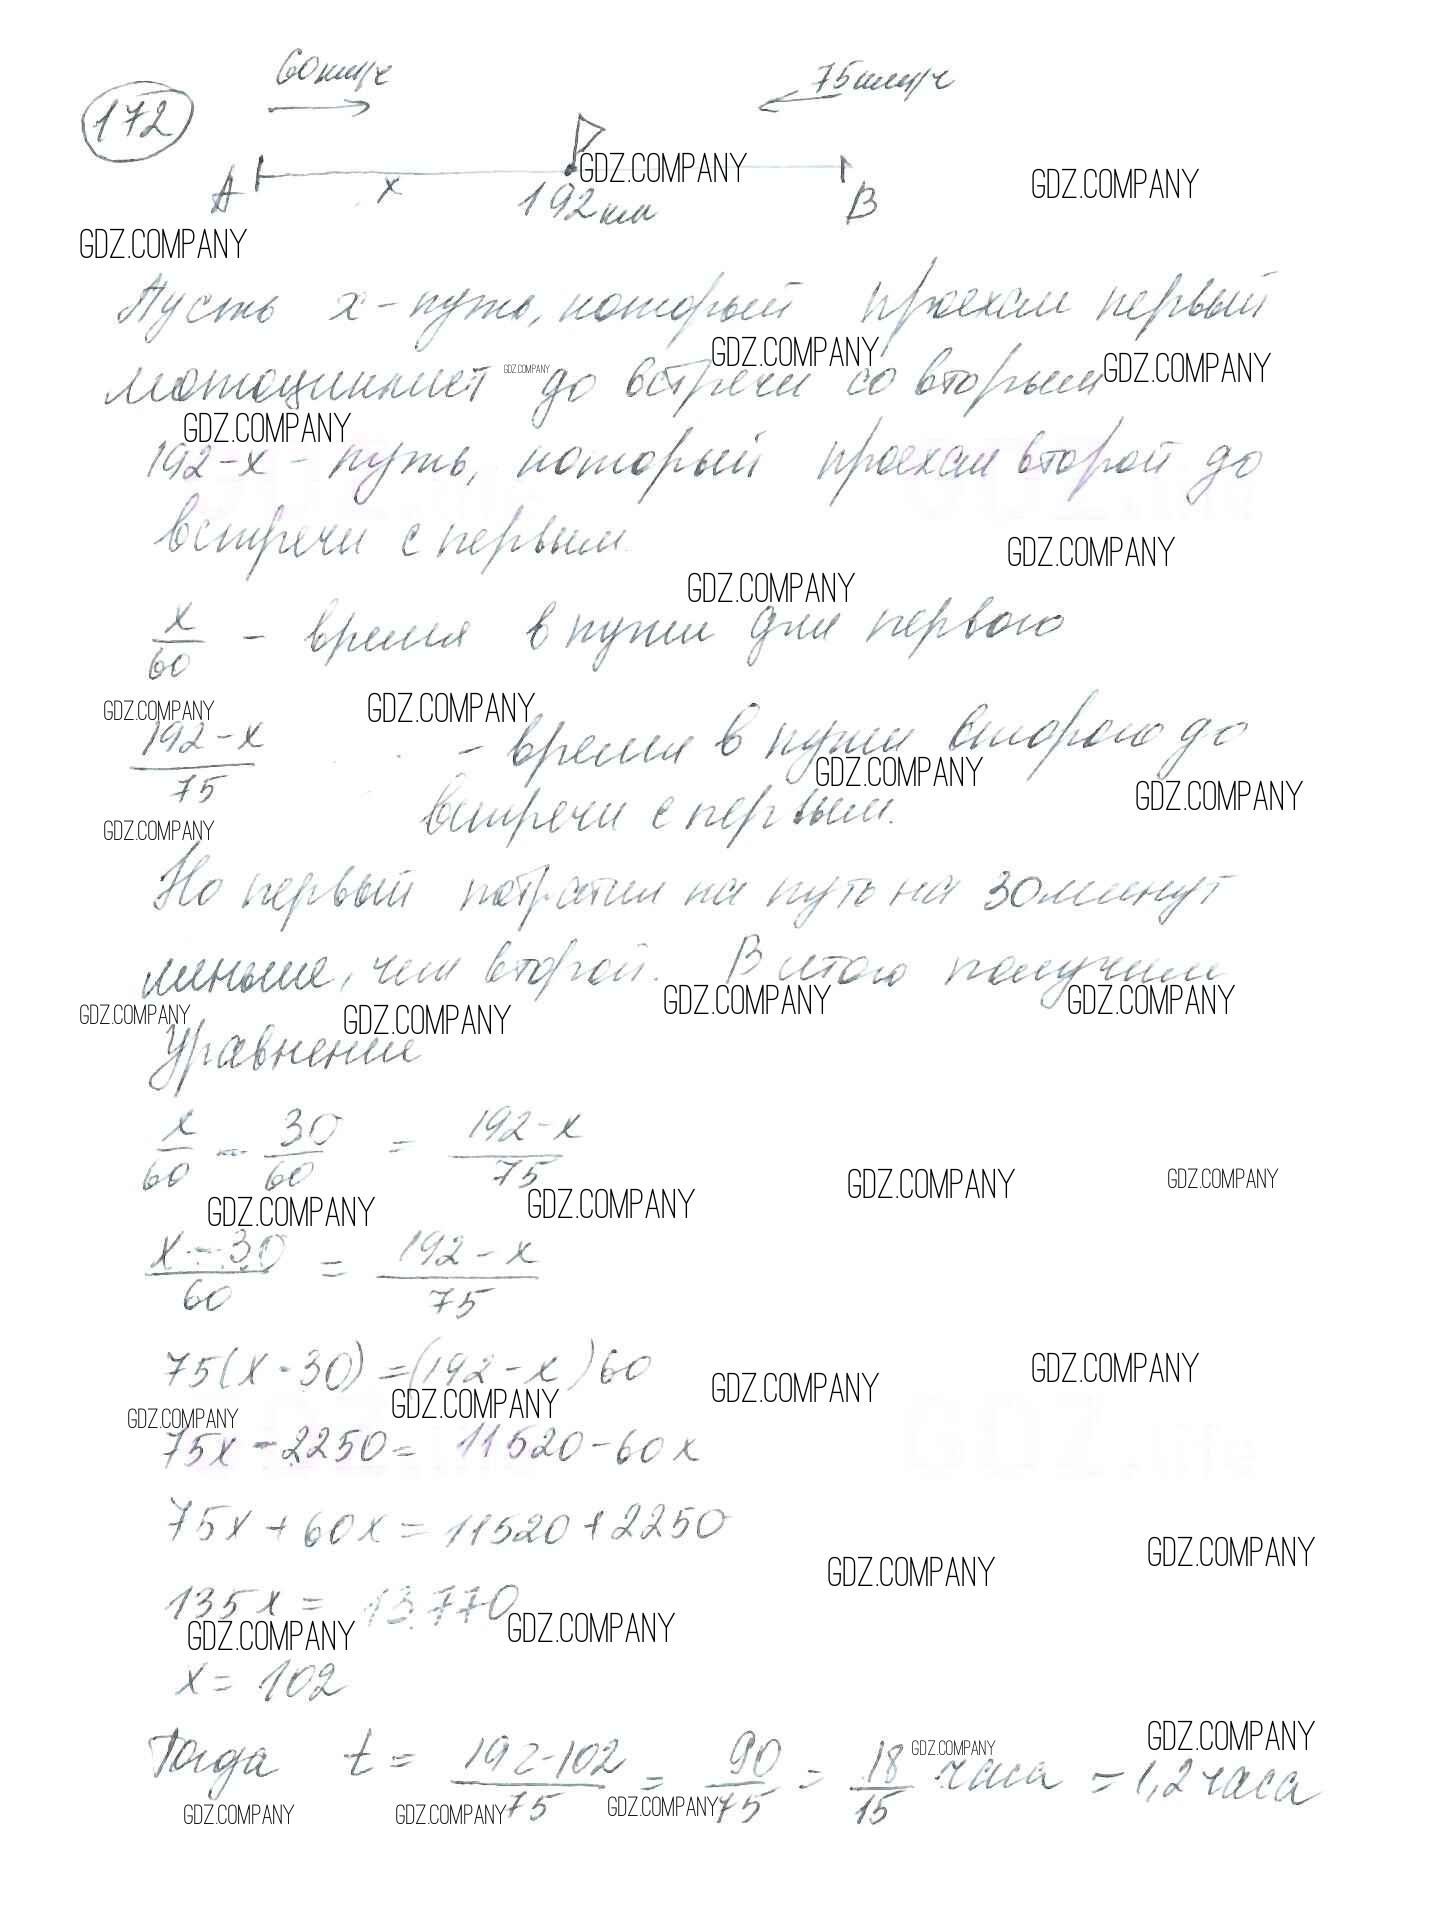 60 км/ч
75 км/ч
172
GDZ.COMPANY
GDZ.COMPANY
A x 192 км B
GDZ.COMPANY
Пусть x – путь, который проехал первый
GDZ.COMPANY
GDZ.COMPANY
GDZ.COMPANY
мотоциклист до встречи со вторым
GDZ.COMPANY
192 – x – путь, который проехал второй до
встречи с первым.
GDZ.COMPANY
GDZ.COMPANY
x/60 – время в пути для первого
GDZ.COMPANY
GDZ.COMPANY
192 – x/75 – время в пути второго до
GDZ.COMPANY
GDZ.COMPANY
встречи с первым.
GDZ.COMPANY
Но первый потратил на путь на 30 минут
меньше, чем второй. В итоге получим
GDZ.COMPANY
GDZ.COMPANY
GDZ.COMPANY
GDZ.COMPANY
Уравнение
x/60 – 30/60 = 192 – x/75
GDZ.COMPANY
GDZ.COMPANY
GDZ.COMPANY
GDZ.COMPANY
x – 30/60 = 192 – x/75
75(x - 30) = (192 – x) 60
GDZ.COMPANY
GDZ.COMPANY
GDZ.COMPANY
GDZ.COMPANY
75x – 2250 = 11520 – 60x
75x + 60x = 11520 + 2250
GDZ.COMPANY
GDZ.COMPANY
135x = 13770
GDZ.COMPANY
GDZ.COMPANY
x = 102
GDZ.COMPANY
GDZ.COMPANY
Тогда t = 192-102/75 = 90/75 = 18/15 часа = 1,2 часа
GDZ.COMPANY
GDZ.COMPANY
GDZ.COMPANY